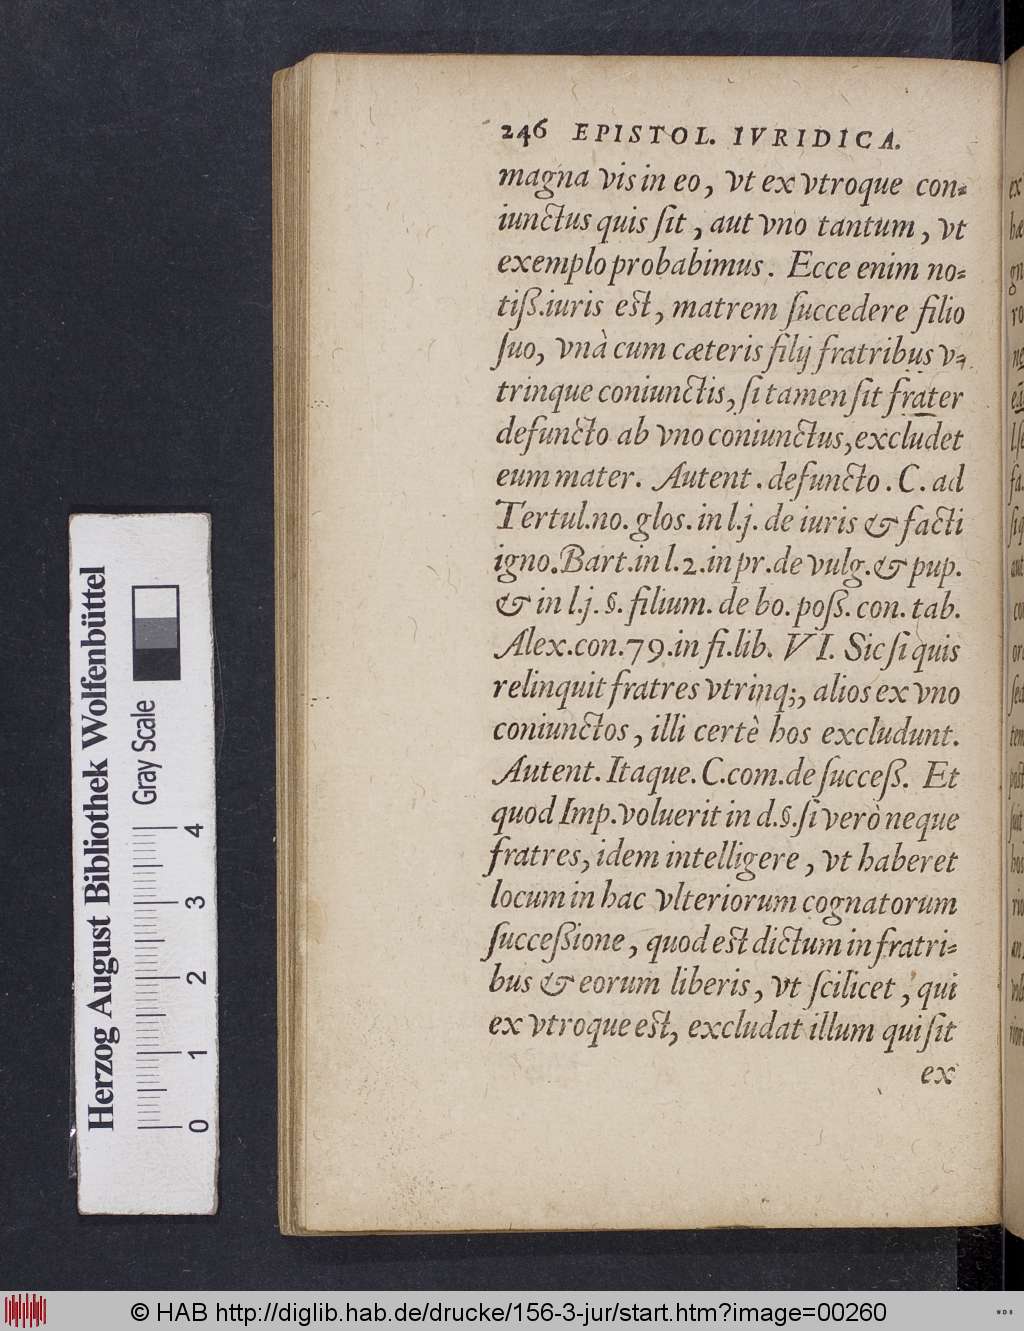 246 EPISTOL. IVRIDICA.
magna vis in eo, vt ex vtroque con-
iunctus quis ſit, aut vno tantum, vt
exemplo probabimus. Ecce enim no-
tiß. iuris est, matrem ſuccedere filio
ſuo, vnà cum cæteris filij fratribus v-
trinque coniunctis, ſi tamen ſit frater
defuncto ab vno coniunctus, excludet
eum mater. Autent. defuncto. C. ad
Tertul. no. glos. in l.j. de iuris & facti
igno. Bart. in l. 2. in pr. de vulg. & pup.
& in l.j. §. filium. de bo. poſſ. con. tab.
Alex. con. 79. in fi. lib. VI. Sic ſi quis
relinquit fratres vtrinq;, alios ex vno
coniunctos, illi certè hos excludunt.
Autent. Itaque. C. com. de ſucceß. Et
quod Imp. voluerit in d. §. ſi verò neque
fratres, idem intelligere, vt haberet
locum in hac vlteriorum cognatorum
ſucceßione, quod est dictum in fratri-
bus & eorum liberis, vt ſcilicet, qui
ex vtroque est, excludat illum qui ſit
ex
Herzog August Bibliothek Wolfenbüttel
Gray Scale
0 1 2 3 4
© HAB http://diglib.hab.de/drucke/156-3-jur/start.htm?image=00260